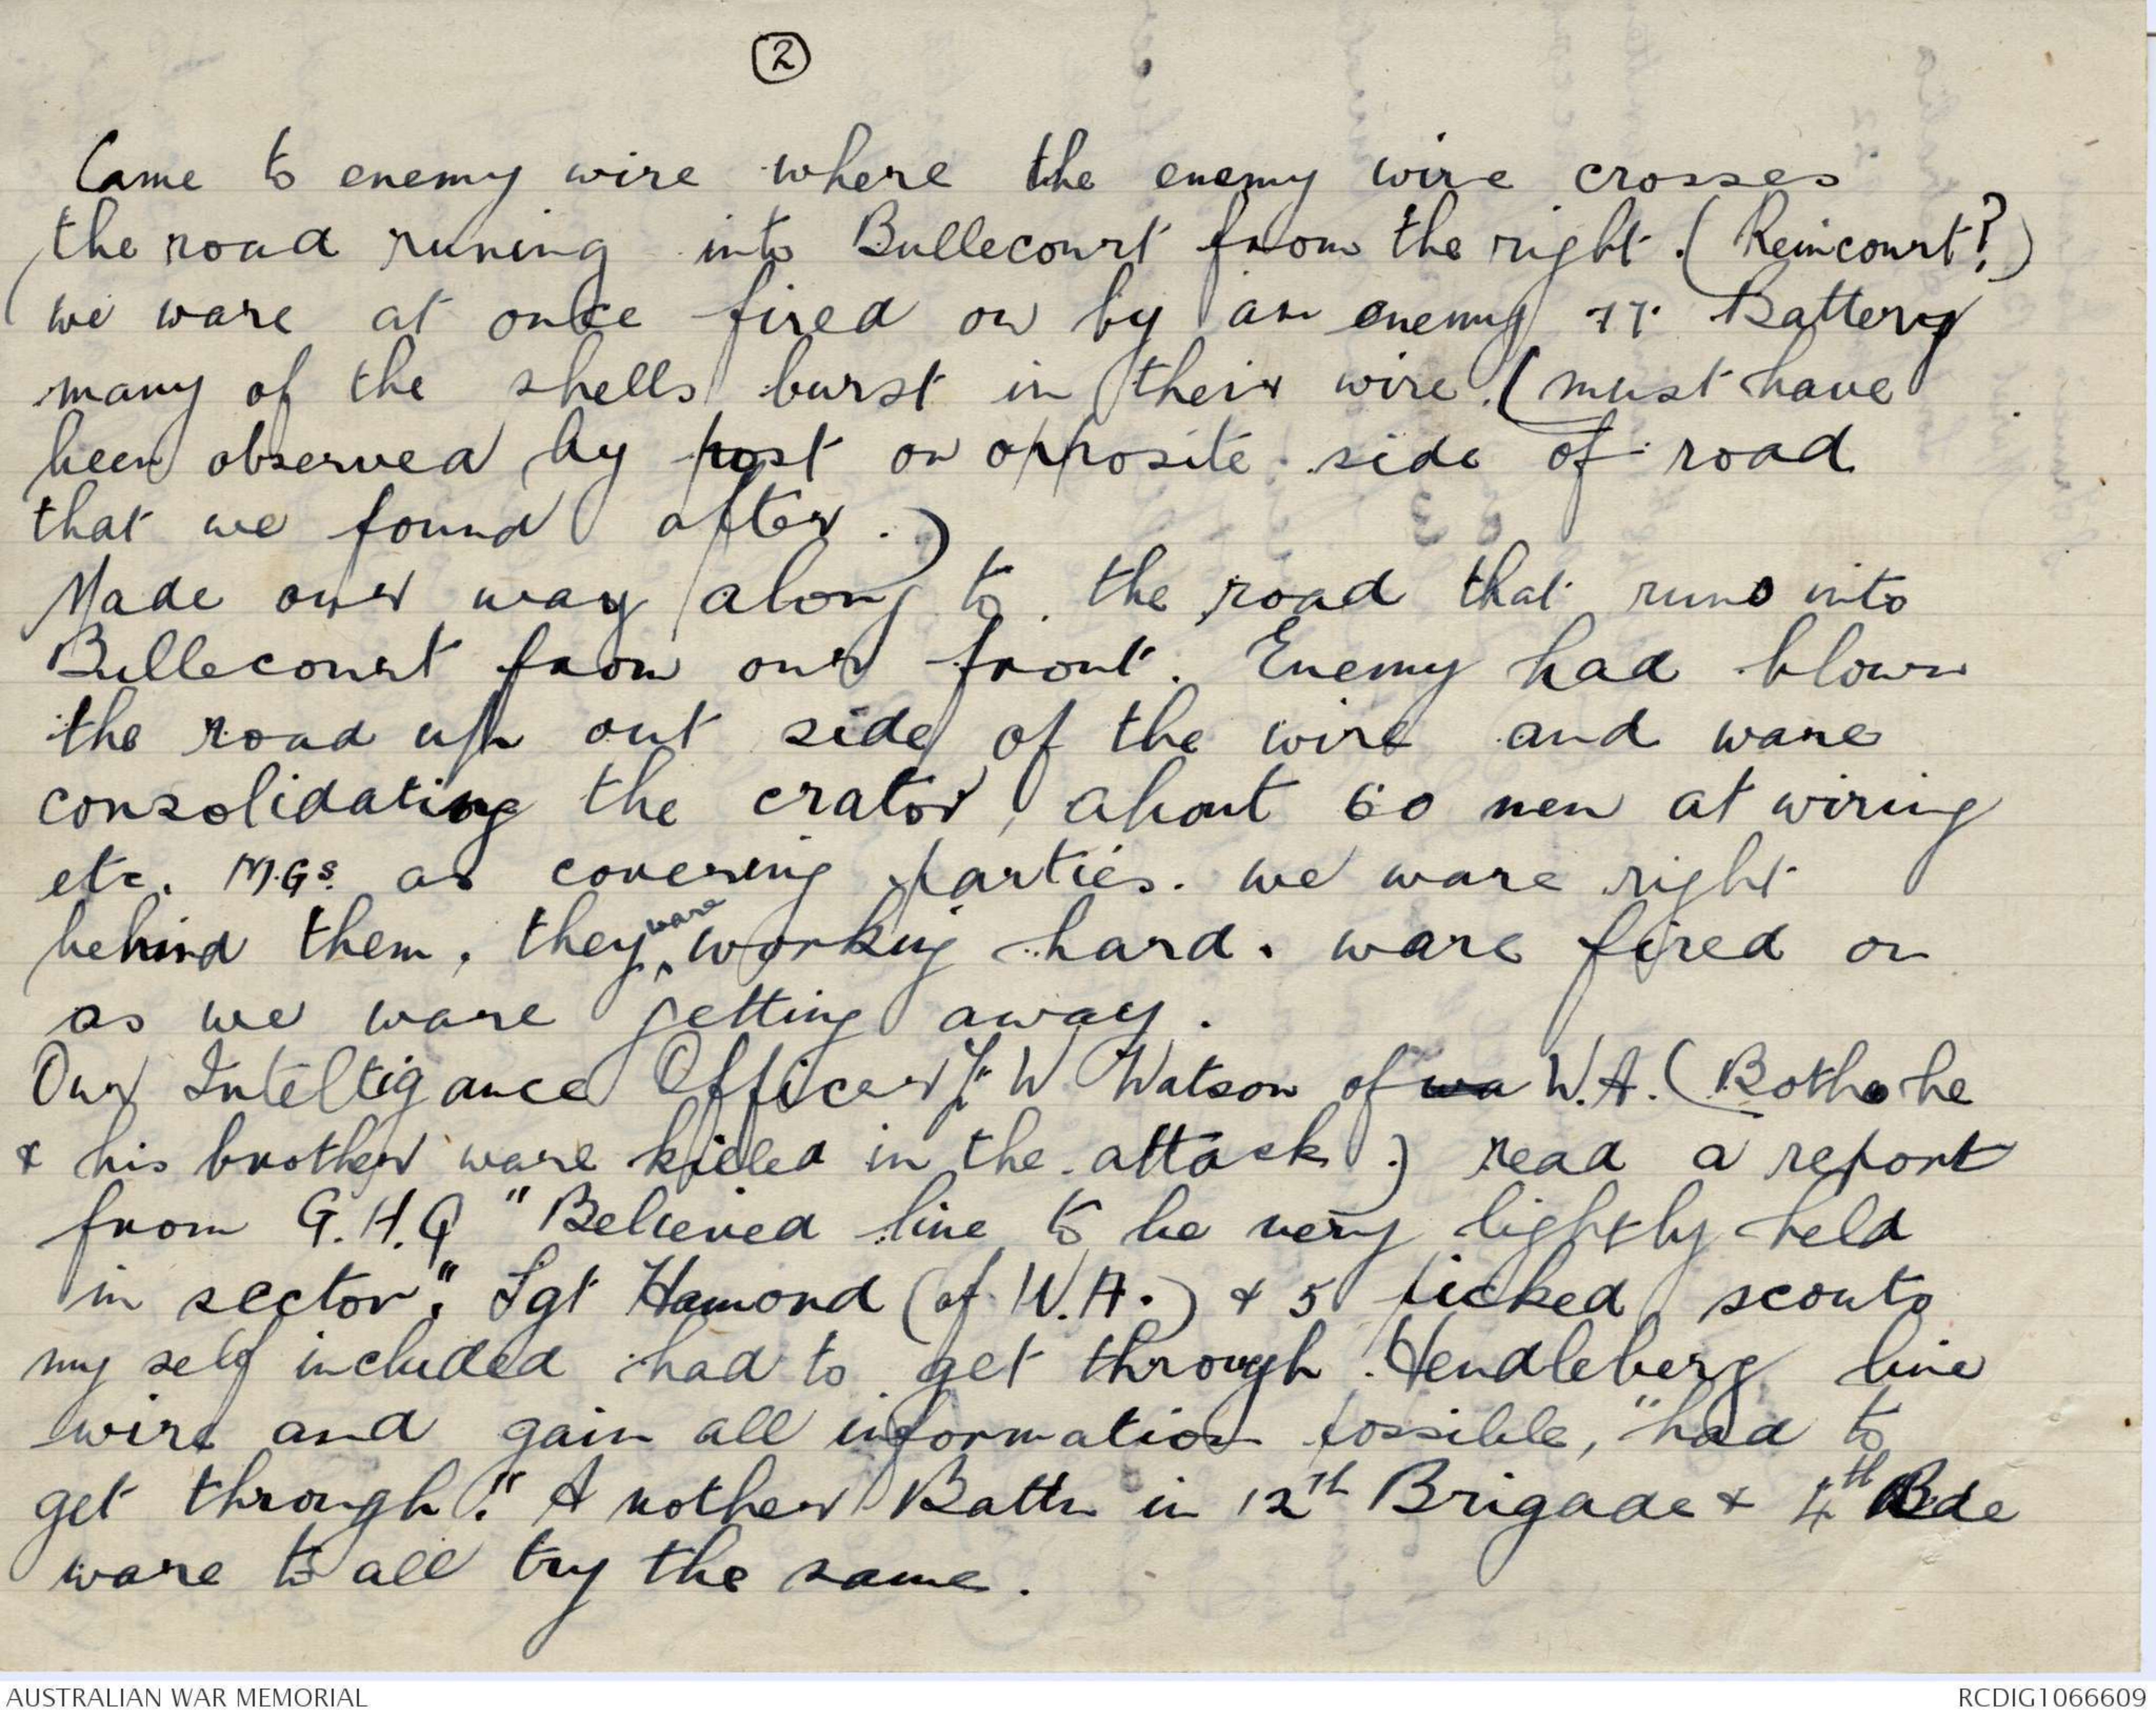 2
Came to enemy wire where the enemy wire crosses
the road runing into Bullecourt from the right. (Reincourt?)
(we ware at once fired on by an enemy 77. Battery
many of the shells burst in their wire. (must have
been observed by post on opposite side of road
that we found after.)
Made our way along to the road that runs into
Bullecourt from our front. Enemy had blown
the road up out side of the wire and ware
consolidating the crator, about 60 men at wiring
etc. M.Gs. as covering parties. we ware right
behind them, they ware working hard. ware fired on
as we ware getting away.
Our Inteltigance Officer W Watson of wa W.A. (Both he
& his brother ware killed in the attack.) read a report
from G.H.Q "Believed line to be very lightly held
in sector". Sgt Hamond (of W.A.) & 5 picked scouts
my self included had to get through Hendleberg line
wire and gain all information possible, "had to
get through." A nother Battn in 12th Brigade & 4th Bde
ware to all try the same.
AUSTRALIAN WAR MEMORIAL
RCDIG1066609